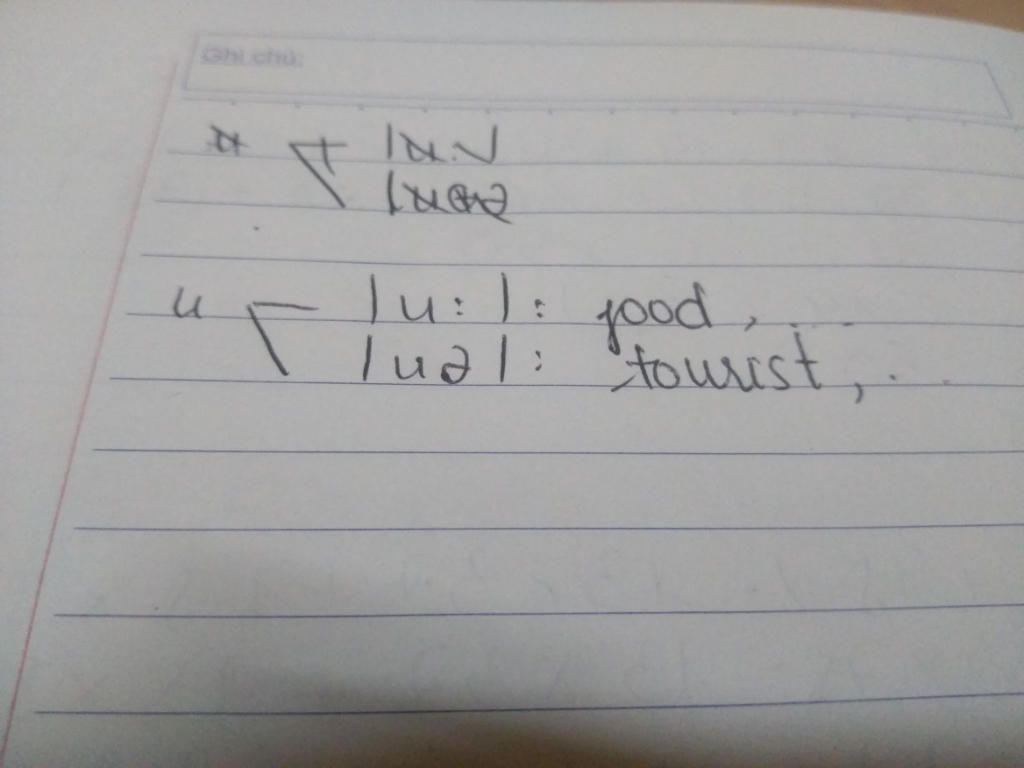 Ghi chú:
u /u:/: food, ...
/uə/: tourist, ...